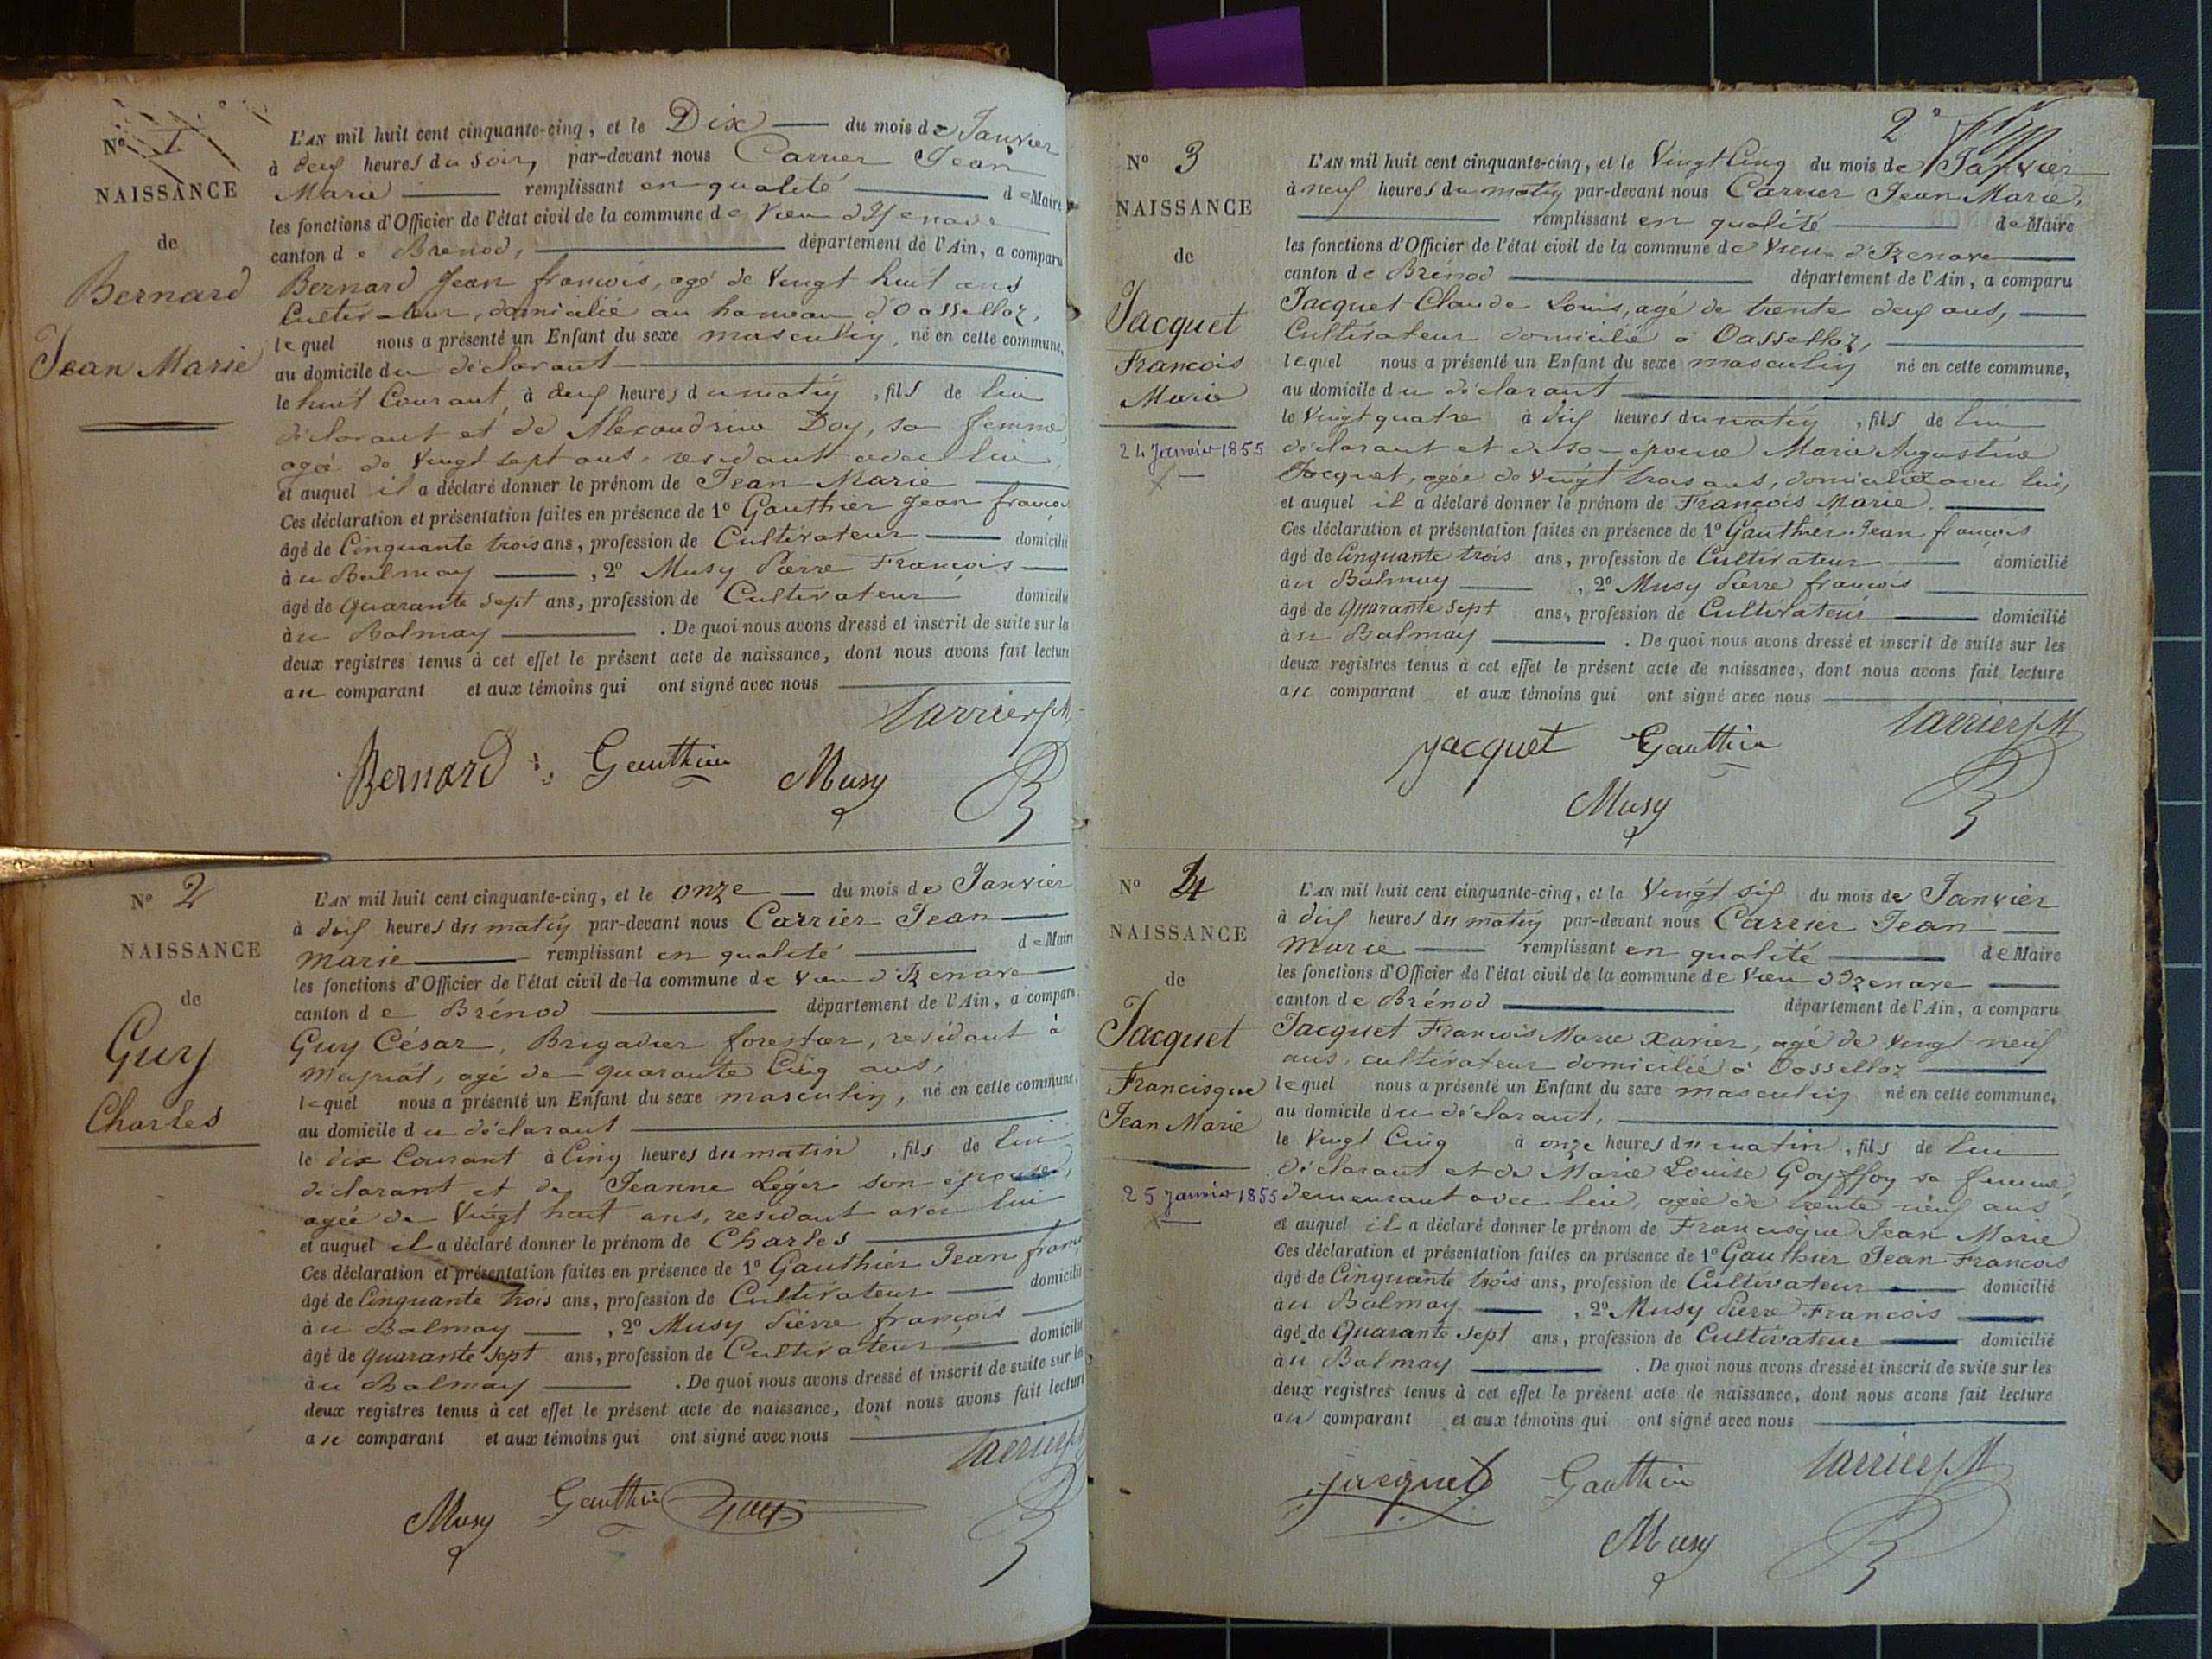 Nº 1
NAISSANCE
de
Bernard
Jean Marie
L'AN mil huit cent cinquante-cinq, et le Dix du mois de Janvier
à deux heures du soir, par-devant nous Carrier Jean
Marie remplissant en qualité de Maire
les fonctions d'Officier de l'état civil de la commune de Vieu d'Izenave
canton de Brenod, département de l'Ain, a comparu
Bernard Jean francois, agé de Vingt huit ans
Cultivateur, domicilié au hameau d'Oassellaz,
lequel nous a présenté un Enfant du sexe masculin, né en cette commune,
au domicile du déclarant
le huit Courant à deux heures du matin, fils de lui
déclarant et de Alexandrine Doy, sa femme,
agée de Vingt sept ans, residant avec lui,
et auquel il a déclaré donner le prénom de Jean Marie
Ces déclaration et présentation faites en présence de 1º Gauthier Jean françois
âgé de Cinquante trois ans, profession de Cultivateur domicilié
à u Balmay, 2º Musy Pierre François
âgé de quarante sept ans, profession de Cultivateur domicilié
à u Balmay. De quoi nous avons dressé et inscrit de suite sur les
deux registres tenus à cet effet le présent acte de naissance, dont nous avons fait lecture
au comparant et aux témoins qui ont signé avec nous
Carrier J M
Bernard Gauthier Musy
Nº 2
NAISSANCE
de
Guy
Charles
L'AN mil huit cent cinquante-cinq, et le onze du mois de Janvier
à dix heures du matin par-devant nous Carrier Jean
marie remplissant en qualité de Maire
les fonctions d'Officier de l'état civil de la commune de Vieu d'Izenave
canton de Brénod département de l'Ain, a comparu
Guy César, Brigadier forestier, residant à
Mayriat, agé de quarante Cinq ans,
lequel nous a présenté un Enfant du sexe masculin, né en cette commune,
au domicile du déclarant
le dix Courant à Cinq heures du matin, fils de lui
déclarant et de Jeanne Léger son épouse,
agée de Vingt huit ans, residant avec lui
et auquel il a déclaré donner le prénom de Charles
Ces déclaration et présentation faites en présence de 1º Gauthier Jean franc
âgé de Cinquante trois ans, profession de Cultivateur domicilié
à u Balmay, 2º Musy Pierre françois
âgé de quarante sept ans, profession de Cultivateur domicilié
à u Balmay. De quoi nous avons dressé et inscrit de suite sur les
deux registres tenus à cet effet le présent acte de naissance, dont nous avons fait lecture
au comparant et aux témoins qui ont signé avec nous
Carrier J M
Musy Gauthier Guy
2e
Nº 3
NAISSANCE
de
Jacquet
Francois
Marie
24 Janvier 1855
L'AN mil huit cent cinquante-cinq, et le Vingt Cinq du mois de Janvier
à neuf heures du matin par-devant nous Carrier Jean Marie,
remplissant en qualité de Maire
les fonctions d'Officier de l'état civil de la commune de Vieu d'Izenave
canton de Brénod département de l'Ain, a comparu
Jacquet Claude Louis, agé de trente deux ans,
Cultivateur domicilié à Oassellaz,
lequel nous a présenté un Enfant du sexe masculin né en cette commune,
au domicile du déclarant
le Vingt quatre à dix heures du matin, fils de lui
déclarant et de son épouse Marie Augustine
Jacquet, agée de Vingt trois ans, domiciliée avec lui,
et auquel il a déclaré donner le prénom de François Marie.
Ces déclaration et présentation faites en présence de 1º Gauthier Jean françois
âgé de Cinquante trois ans, profession de Cultivateur domicilié
à u Balmay, 2º Musy Pierre françois
âgé de Quarante sept ans, profession de Cultivateur domicilié
à u Balmay. De quoi nous avons dressé et inscrit de suite sur les
deux registres tenus à cet effet le présent acte de naissance, dont nous avons fait lecture
au comparant et aux témoins qui ont signé avec nous
Carrier J M
Jacquet Gauthier
Musy
Nº 4
NAISSANCE
de
Jacquet
Francisque
Jean Marie
25 Janvier 1855
L'AN mil huit cent cinquante-cinq, et le Vingt six du mois de Janvier
à dix heures du matin par-devant nous Carrier Jean
Marie remplissant en qualité de Maire
les fonctions d'Officier de l'état civil de la commune de Vieu d'Izenave
canton de Brénod département de l'Ain, a comparu
Jacquet François Marie Xavier, agé de Vingt neuf
ans, cultivateur domicilié à Oassellaz
lequel nous a présenté un Enfant du sexe masculin né en cette commune,
au domicile du déclarant,
le Vingt Cinq à onze heures du matin, fils de lui
déclarant et de Marie Louise Goyffoy sa femme,
demeurant avec lui, agée de trente neuf ans
et auquel il a déclaré donner le prénom de Francisque Jean Marie
Ces déclaration et présentation faites en présence de 1º Gauthier Jean François
âgé de Cinquante trois ans, profession de Cultivateur domicilié
à u Balmay, 2º Musy Pierre François
âgé de Quarante sept ans, profession de Cultivateur domicilié
à u Balmay. De quoi nous avons dressé et inscrit de suite sur les
deux registres tenus à cet effet le présent acte de naissance, dont nous avons fait lecture
au comparant et aux témoins qui ont signé avec nous
Carrier J M
Jacquet Gauthier
Musy